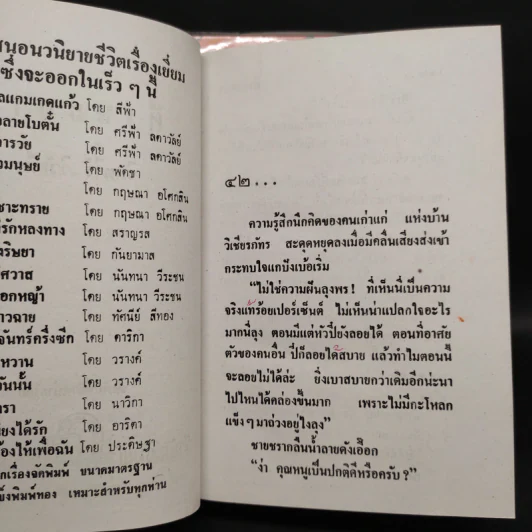 สนอนวนิยายชีวิตเรื่องเยี่ยม
ซึ่งจะออกในเร็ว ๆ นี้
ลแกมเกดแก้ว โดย สีฟ้า
ลายโบตั๋น โดย ศรีฟ้า ลดาวัลย์
ารวัย โดย ศรีฟ้า ลดาวัลย์
วมนุษย์ โดย พัดชา
โดย กฤษณา อโศกสิน
ชะทราย โดย กฤษณา อโศกสิน
รักหลงทาง โดย สราญรส
งริษยา โดย กันยามาส
ศวาส โดย นันทนา วีระชน
อกหญ้า โดย นันทนา วีระชน
าวฉาย โดย ทัศนีย์ สีทอง
จันทร์ครึ่งซีก โดย ดาริกา
หวาน โดย วรางค์
วันนั้น โดย วรางค์
รา โดย นาวิกา
ยงได้รัก โดย อาริตา
องไห้เพื่อฉัน โดย ประดิษฐา
กเรื่องจัดพิมพ์ ขนาดมาตรฐาน
ข็งพิมพ์ทอง เหมาะสำหรับทุกท่าน
๔๒...
ความรู้สึกนึกคิดของคนเก่าแก่ แห่งบ้าน
วิเชียรภัทร สะดุดหยุดลงเมื่อมีคลื่นเสียงส่งเข้า
กระทบใจแกบึงเบ้อเริ่ม
“ไม่ใช่ความฝันลุงพร! ที่เห็นนี่เป็นความ
จริงแท้ร้อยเปอร์เซ็นต์ ไม่เห็นน่าแปลกใจอะไร
มากนี่ลุง ตอนมีแต่หัวปี่ยังลอยได้ ตอนที่อาศัย
ตัวของคนอื่น ปี่ก็ลอยได้สบาย แล้วทำไมตอนนี้
จะลอยไม่ได้ล่ะ ยิ่งเบาสบายกว่าเดิมอีกน่ะนา
ไปไหนได้คล่องขึ้นมาก เพราะไม่มีกะโหลก
แข็ง ๆ มาถ่วงอยู่ไงลุง”
ชายชรากลืนน้ำลายดังเอื๊อก
“ง่า คุณหนูเป็นปกติดีหรือครับ?”